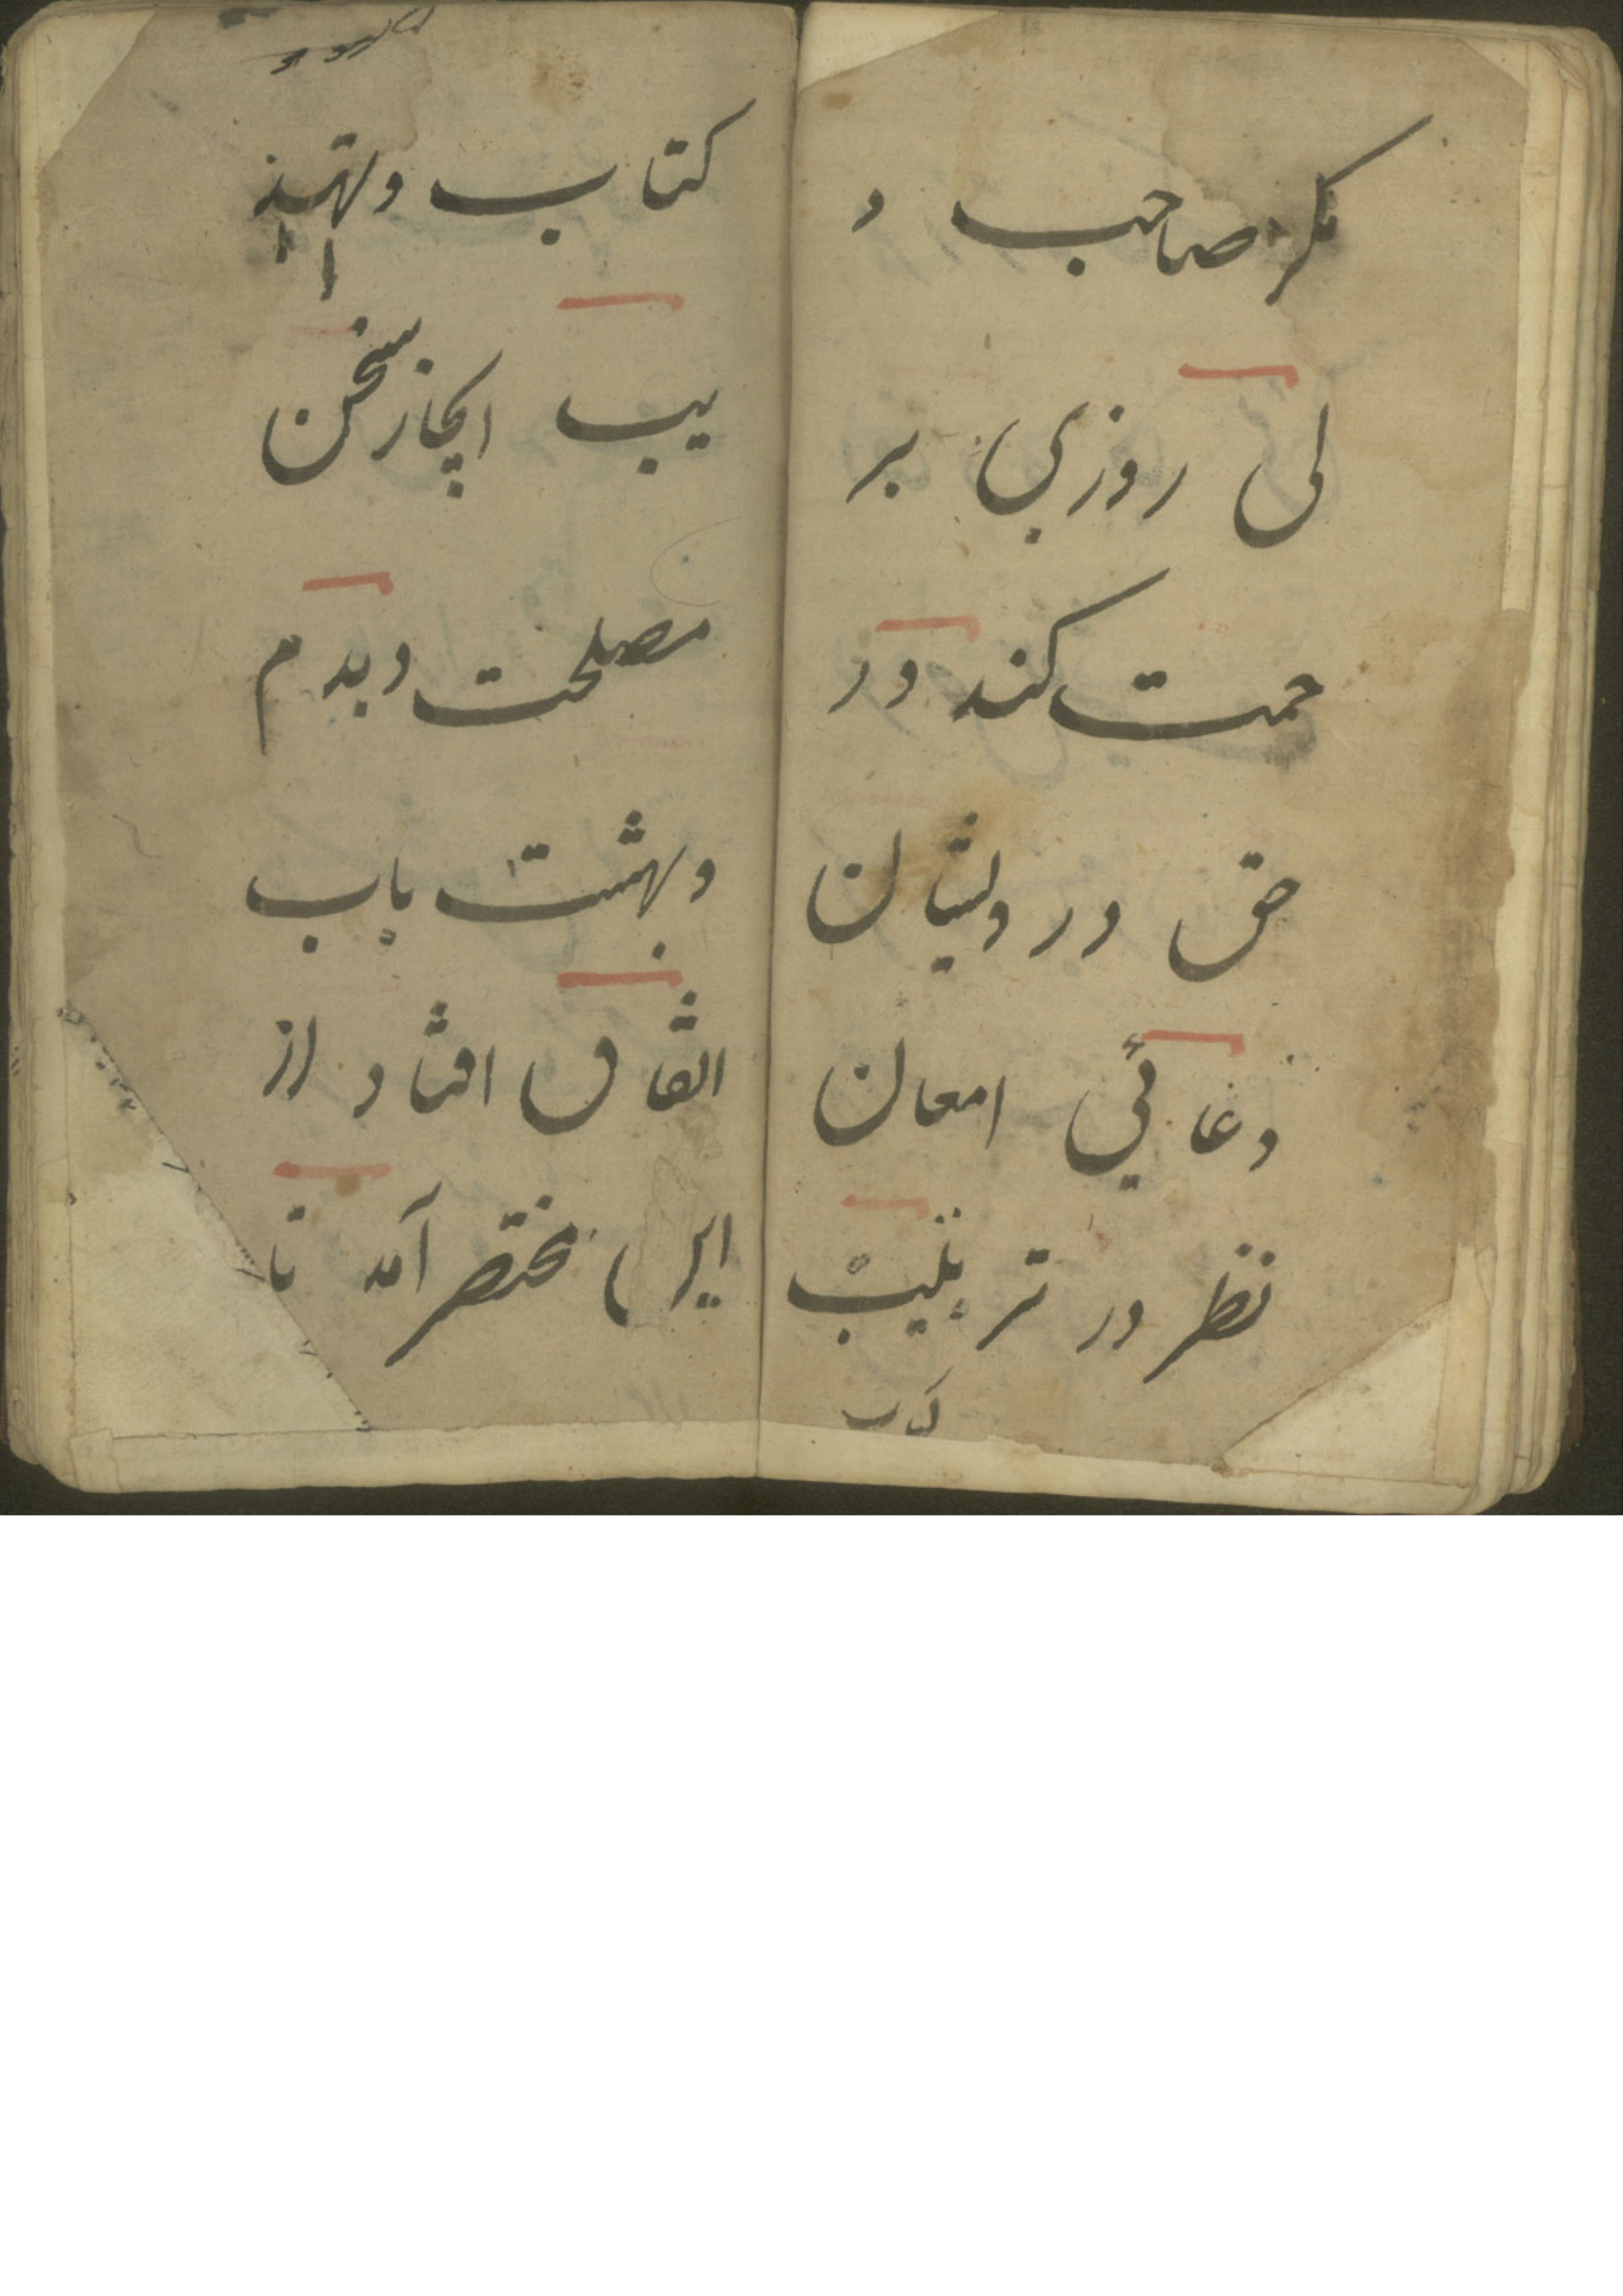 مکر صاحب د
لی روزی بر
حمت کند در
حق درویشان
دعائی امعان
نظر در ترتیب
کتاب
کتاب و تهذ
یب ایجاز سخن
مصلحت دیدم
و بهشت باب
اتفاق افتاد از
این مختصر آمد تا